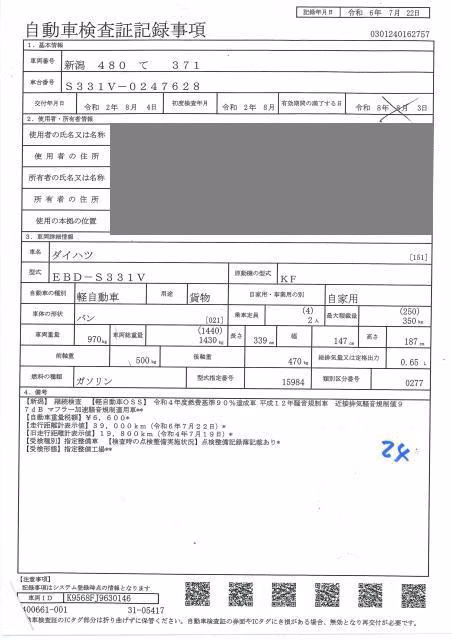 記録年月日 令和 6年 7月 22日
自動車検査証記録事項
0301240162757
1. 基本情報
車両番号 新潟 480 て 371
車台番号 S331V-0247628
交付年月日 令和 2年 8月 4日 初度検査年月 令和 2年 8月 有効期間の満了する日 令和 8年 8月 3日
2. 使用者・所有者情報
使用者の氏名又は名称
使用者の住所
所有者の氏名又は名称
所有者の住所
使用の本拠の位置
3. 車両詳細情報
車名 ダイハツ [151]
型式 EBD-S331V 原動機の型式 KF
自動車の種別 軽自動車 用途 貨物 自家用・事業用の別 自家用
車体の形状 バン [021] 乗車定員 (4) 2人 最大積載量 (250) 350kg
車両重量 970kg 車両総重量 (1440) 1430kg 長さ 339cm 幅 147cm 高さ 187cm
前軸重 500kg 後軸重 470kg 総排気量又は定格出力 0.65 L
燃料の種類 ガソリン 型式指定番号 15984 類別区分番号 0277
4. 備考
【新潟】 継続検査 【軽自動車OSS】 令和4年度燃費基準90%達成車 平成12年騒音規制車 近接排気騒音規制値9
7dB マフラー加速騒音規制適用車**
【自動車重量税額】¥6,600*
【走行距離計表示値】39,000km(令和6年7月22日)*
【旧走行距離計表示値】19,800km(令和4年7月19日)*
【受検種別】指定整備車 【検査時の点検整備実施状況】点検整備記録簿記載あり*
【受検形態】指定整備工場**
24
【注意事項】
記録事項はシステム登録時点の情報となります
車両ID K9568FJ9630146
400661-001 31-05417
自動車検査証のICタグ部分は折り曲げずに保管ください。自動車検査証の券面やICタグにき損がある場合、無効となり再交付が必要です。